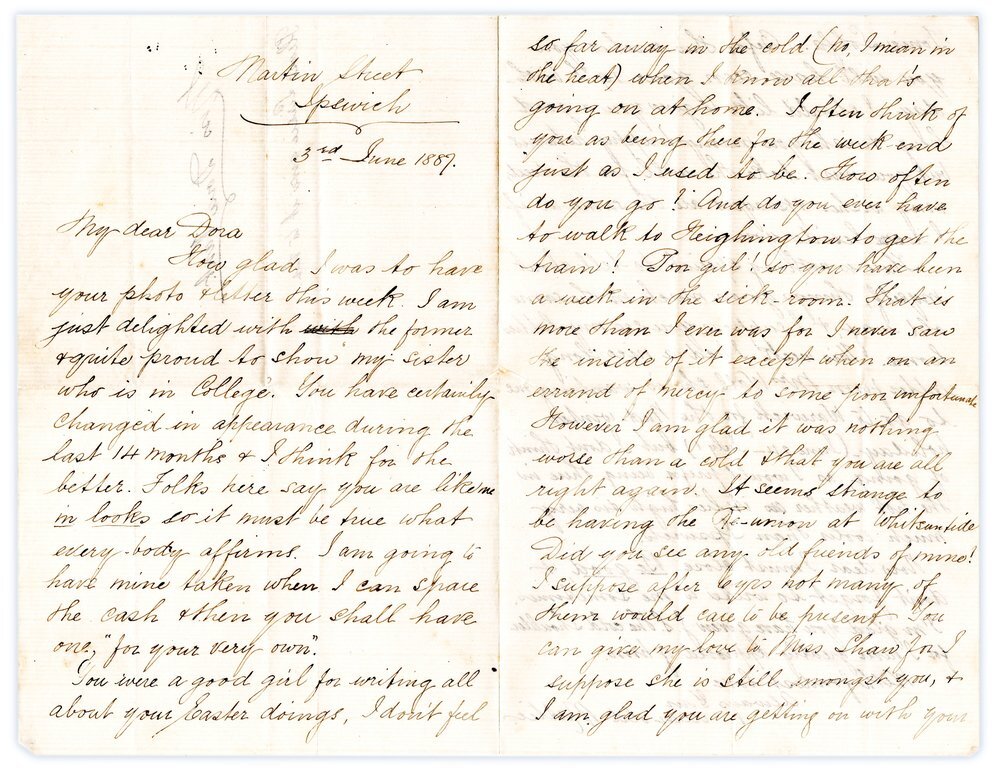 Martin Street
Ipswich
3rd June 1887.
My dear Dora
How glad I was to have
your photo & letter this week. I am
just delighted with with the former
& quite proud to show my sister
who is in College. You have certainly
changed in appearance during the
last 14 months & I think for the
better. Folks here say you are like me
in looks so it must be true what
every-body affirms. I am going to
have mine taken when I can spare
the cash & then you shall have
one, "for your very own".
You were a good girl for writing all
about your Easter doings, I don't feel
so far away in the cold (no, I mean in
the heat) when I know all that's
going on at home. I often think of
you as being there for the week-end
just as I used to be. How often
do you go? And do you ever have
to walk to Heighington to get the
train! Poor girl! so you have been
a week in the sick-room. That is
more than I ever was for I never saw
the inside of it except when on an
errand of mercy to some poor unfortunate
However I am glad it was nothing
worse than a cold & that you are all
right again. It seems strange to
be having the Re-union at Whitsuntide
Did you see any old friends of mine!
I suppose after 6 yrs not many of
them would care to be present. You
can give my love to Miss Shaw for I
suppose she is still amongst you, &
I am glad you are getting on with your